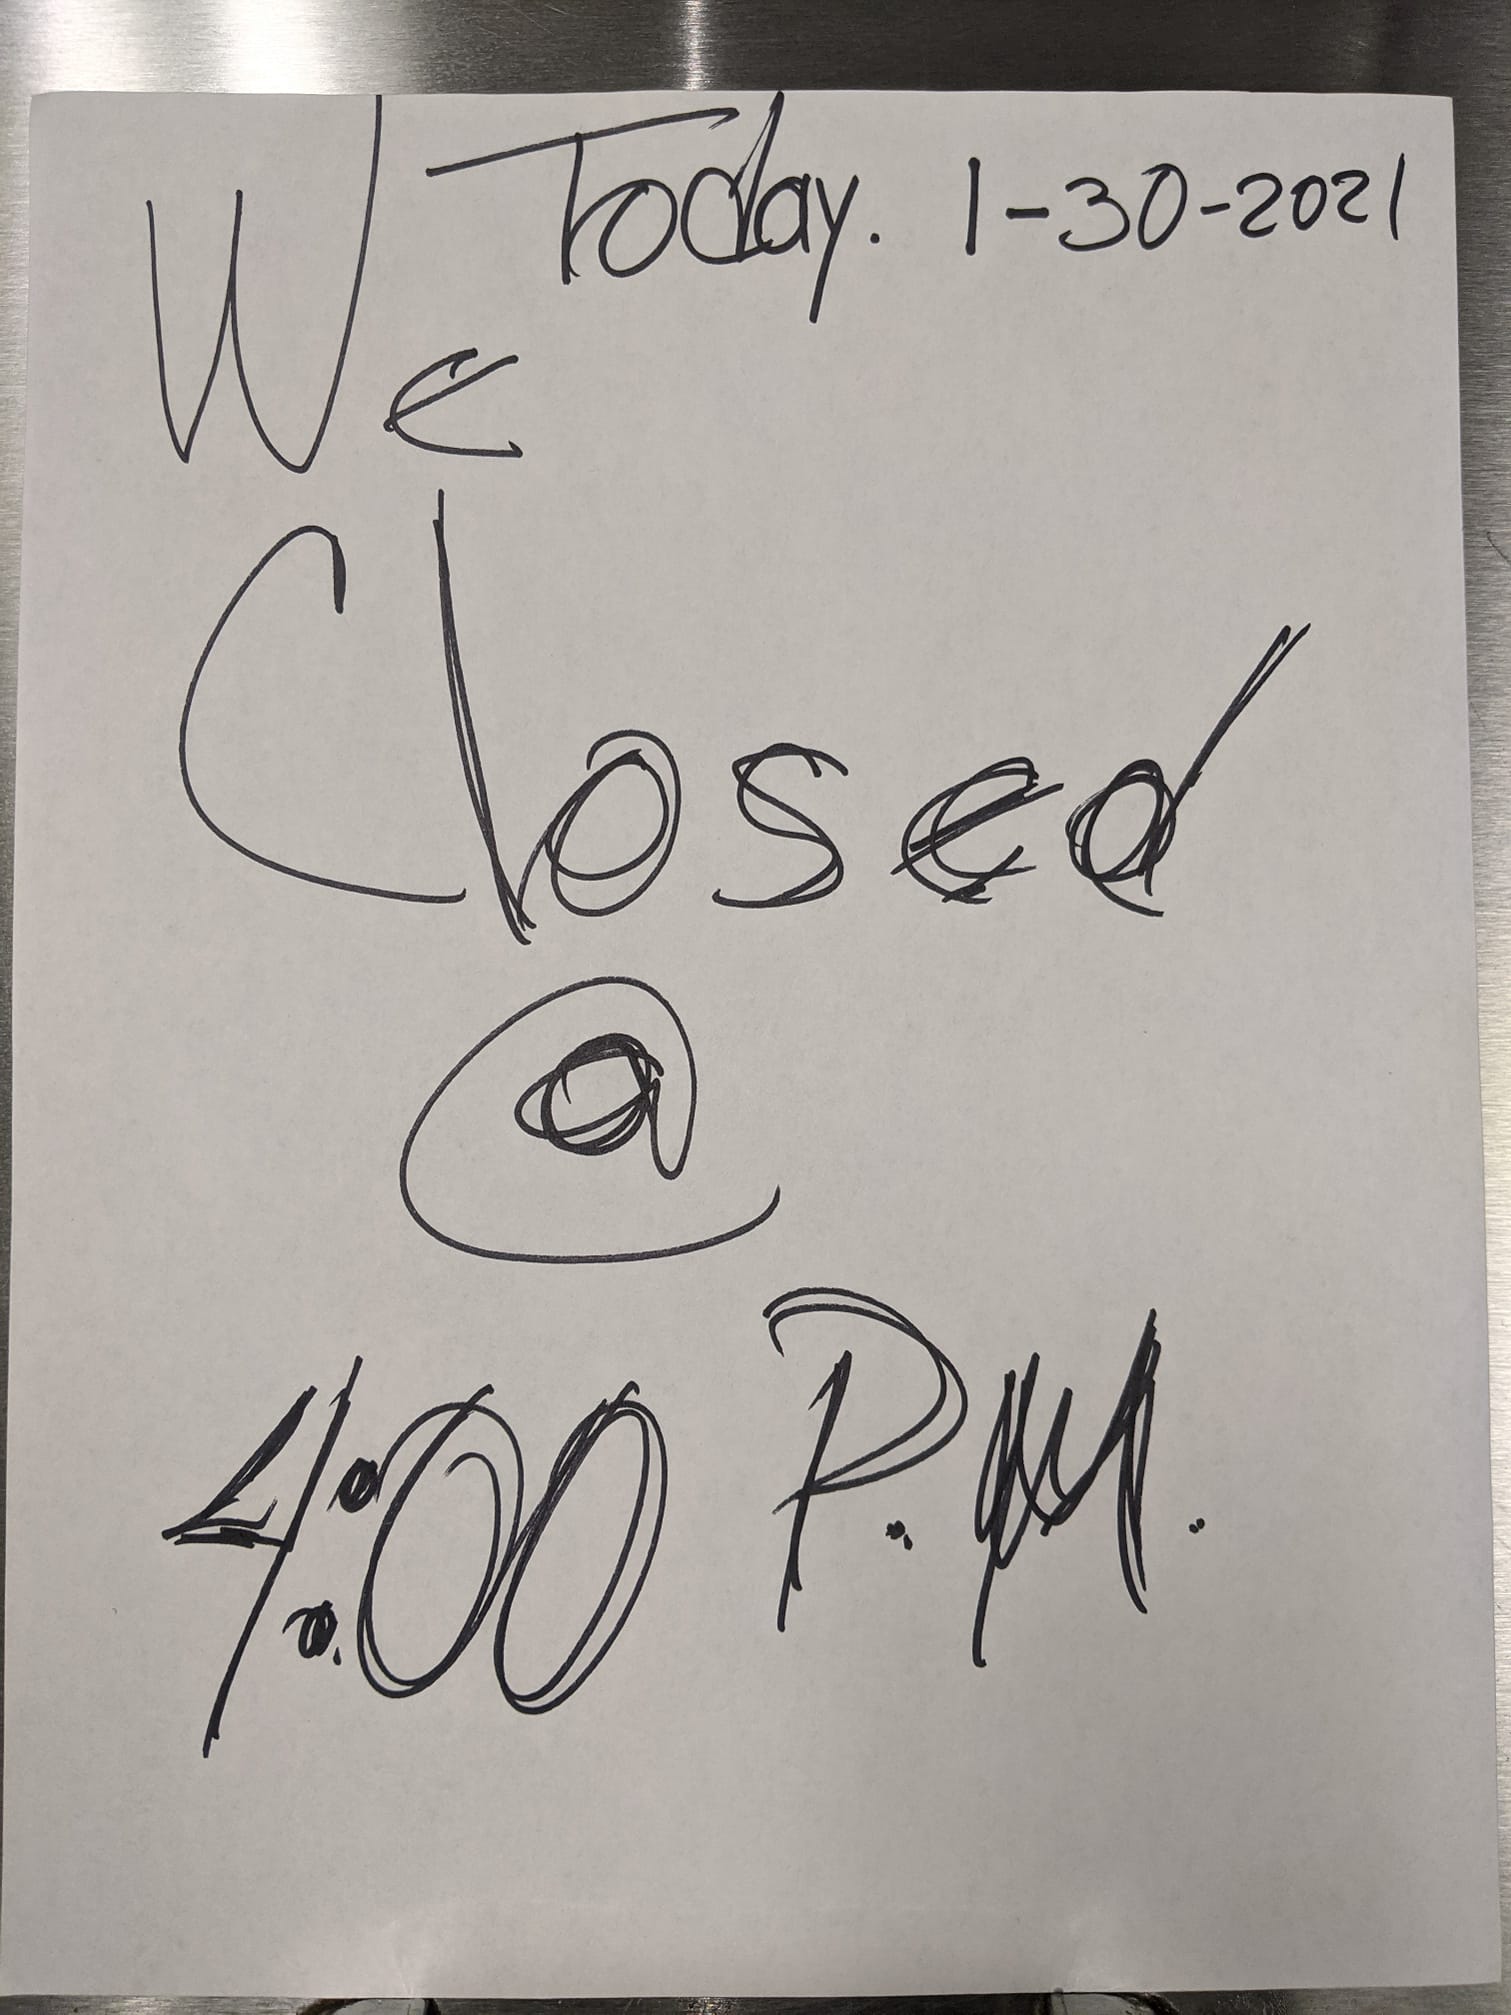 Today. 1-30-2021
We
Closed
@
4:00 P.M.